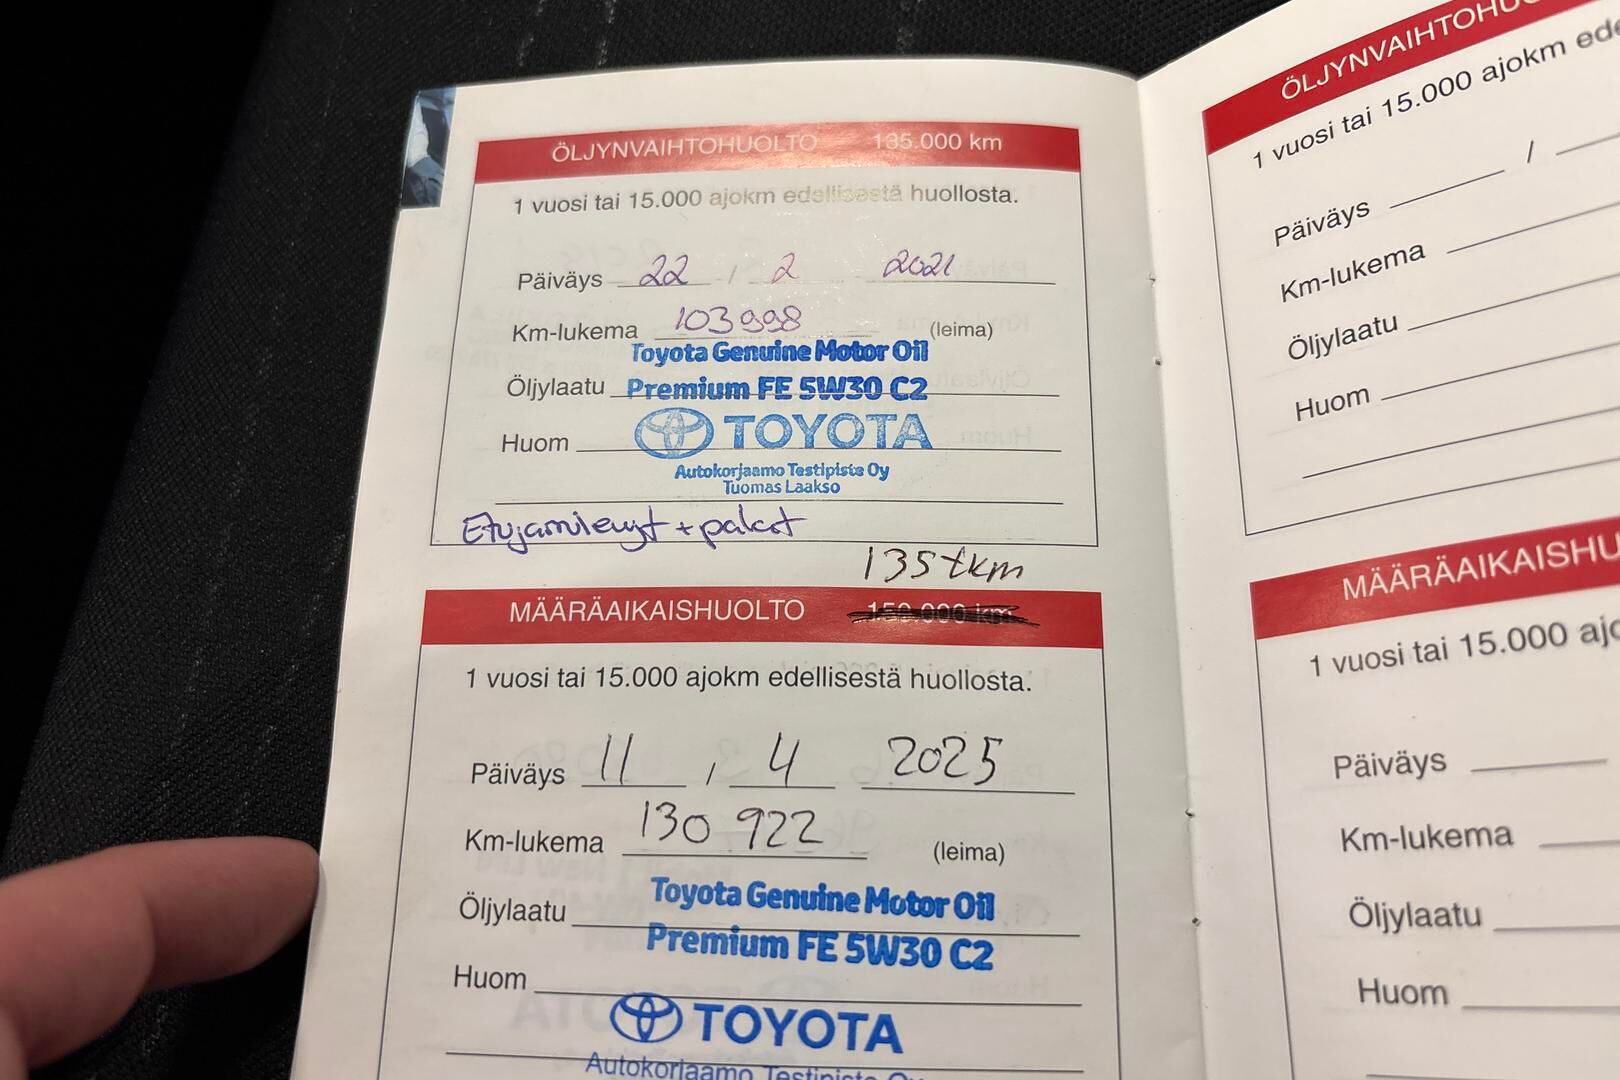 ÖLJYNVAIHTOHUOLTO 135.000 km
1 vuosi tai 15.000 ajokm edellisestä huollosta.
Päiväys 22 / 2 2021
Km-lukema 103998 (leima)
Toyota Genuine Motor Oil
Öljylaatu Premium FE 5W30 C2
Huom TOYOTA
Autokorjaamo Testipiste Oy
Tuomas Laakso
Etujarrulevyt + palat
135 tkm
MÄÄRÄAIKAISHUOLTO 150.000 km
1 vuosi tai 15.000 ajokm edellisestä huollosta.
Päiväys 11 / 4 2025
Km-lukema 130 922 (leima)
Toyota Genuine Motor Oil
Öljylaatu
Premium FE 5W30 C2
Huom
TOYOTA
Autokorjaamo Testipiste Oy
ÖLJYNVAIHTOHUO
1 vuosi tai 15.000 ajokm ede
Päiväys /
Km-lukema
Öljylaatu
Huom
MÄÄRÄAIKAISHU
1 vuosi tai 15.000 ajo
Päiväys
Km-lukema
Öljylaatu
Huom